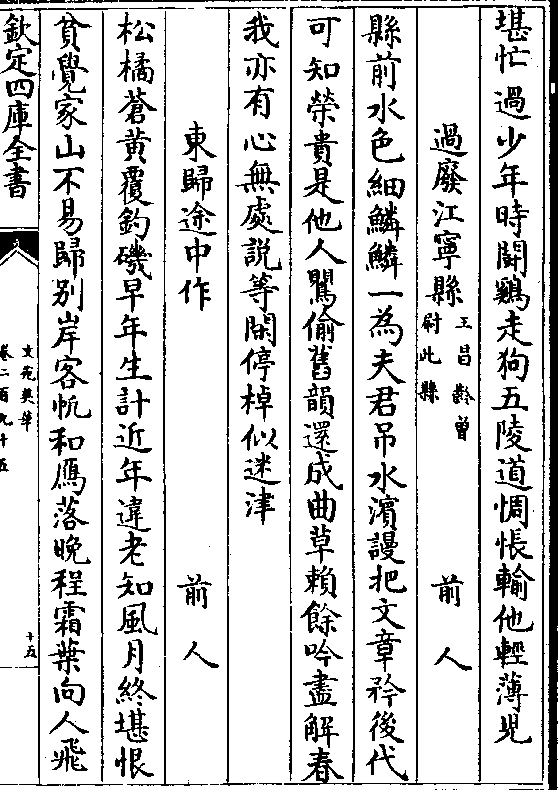 堪忙過少年時鬪鷄走狗五陵道惆悵輸他輕薄兒
過廢江寧縣王昌齡曾尉此縣 前人
縣前水色細鱗鱗一為夫君吊水濱謾把文章矜後代
可知榮貴是他人鸎偷舊韻還成曲草賴餘吟盡解春
我亦有心無處説等閑停棹似迷津
東歸途中作 前人
松橘蒼黄覆釣磯早年生計近年違老知風月終堪恨
貧覺家山不易歸别岸客帆和鴈落晚程霜葉向人飛
欽定四庫全書
文苑英華
卷二百九十五
十五